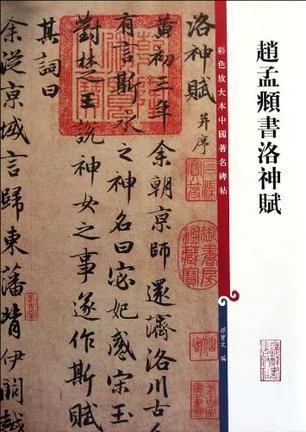 趙孟頫書洛神賦
彩色放大本中國著名碑帖
孫寶文 編
洛神賦 并序
黃初三年余朝京師還濟洛川古人
有言斯水之神名曰宓妃感宋玉
對楚王說神女之事遂作斯賦
其詞曰
余從京域言歸東藩背伊闕越
御書房鑑藏寶